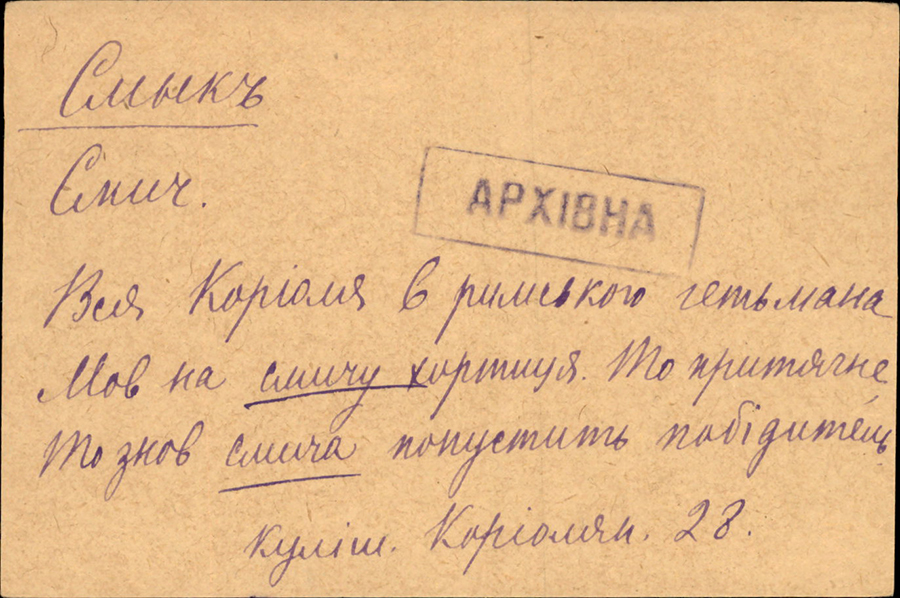 Смыкъ
Смич.
АРХІВНА
Вся Коріоля в римського гетьмана
Мов на смичу хортиця. То притягне
То знов смича попустить побідитель
Куліш. Коріолян. 28.